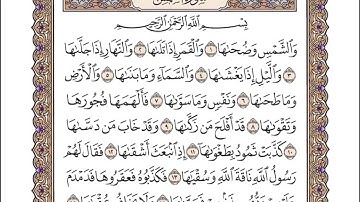 بِسْمِ اللَّهِ الرَّحْمَٰنِ الرَّحِيمِ
وَالشَّمْسِ وَضُحَىٰهَا ١ وَالْقَمَرِ إِذَا تَلَىٰهَا ٢ وَالنَّهَارِ إِذَا جَلَّىٰهَا
٣ وَالَّيْلِ إِذَا يَغْشَىٰهَا ٤ وَالسَّمَاءِ وَمَا بَنَىٰهَا ٥ وَالْأَرْضِ
وَمَا طَحَىٰهَا ٦ وَنَفْسٍ وَمَا سَوَّىٰهَا ٧ فَأَلْهَمَهَا فُجُورَهَا
وَتَقْوَىٰهَا ٨ قَدْ أَفْلَحَ مَن زَكَّىٰهَا ٩ وَقَدْ خَابَ مَن دَسَّىٰهَا
١٠ كَذَّبَتْ ثَمُودُ بِطَغْوَىٰهَا ١١ إِذِ انبَعَثَ أَشْقَىٰهَا ١٢ فَقَالَ لَهُمْ
رَسُولُ اللَّهِ نَاقَةَ اللَّهِ وَسُقْيَىٰهَا ١٣ فَكَذَّبُوهُ فَعَقَرُوهَا فَدَمْدَمَ